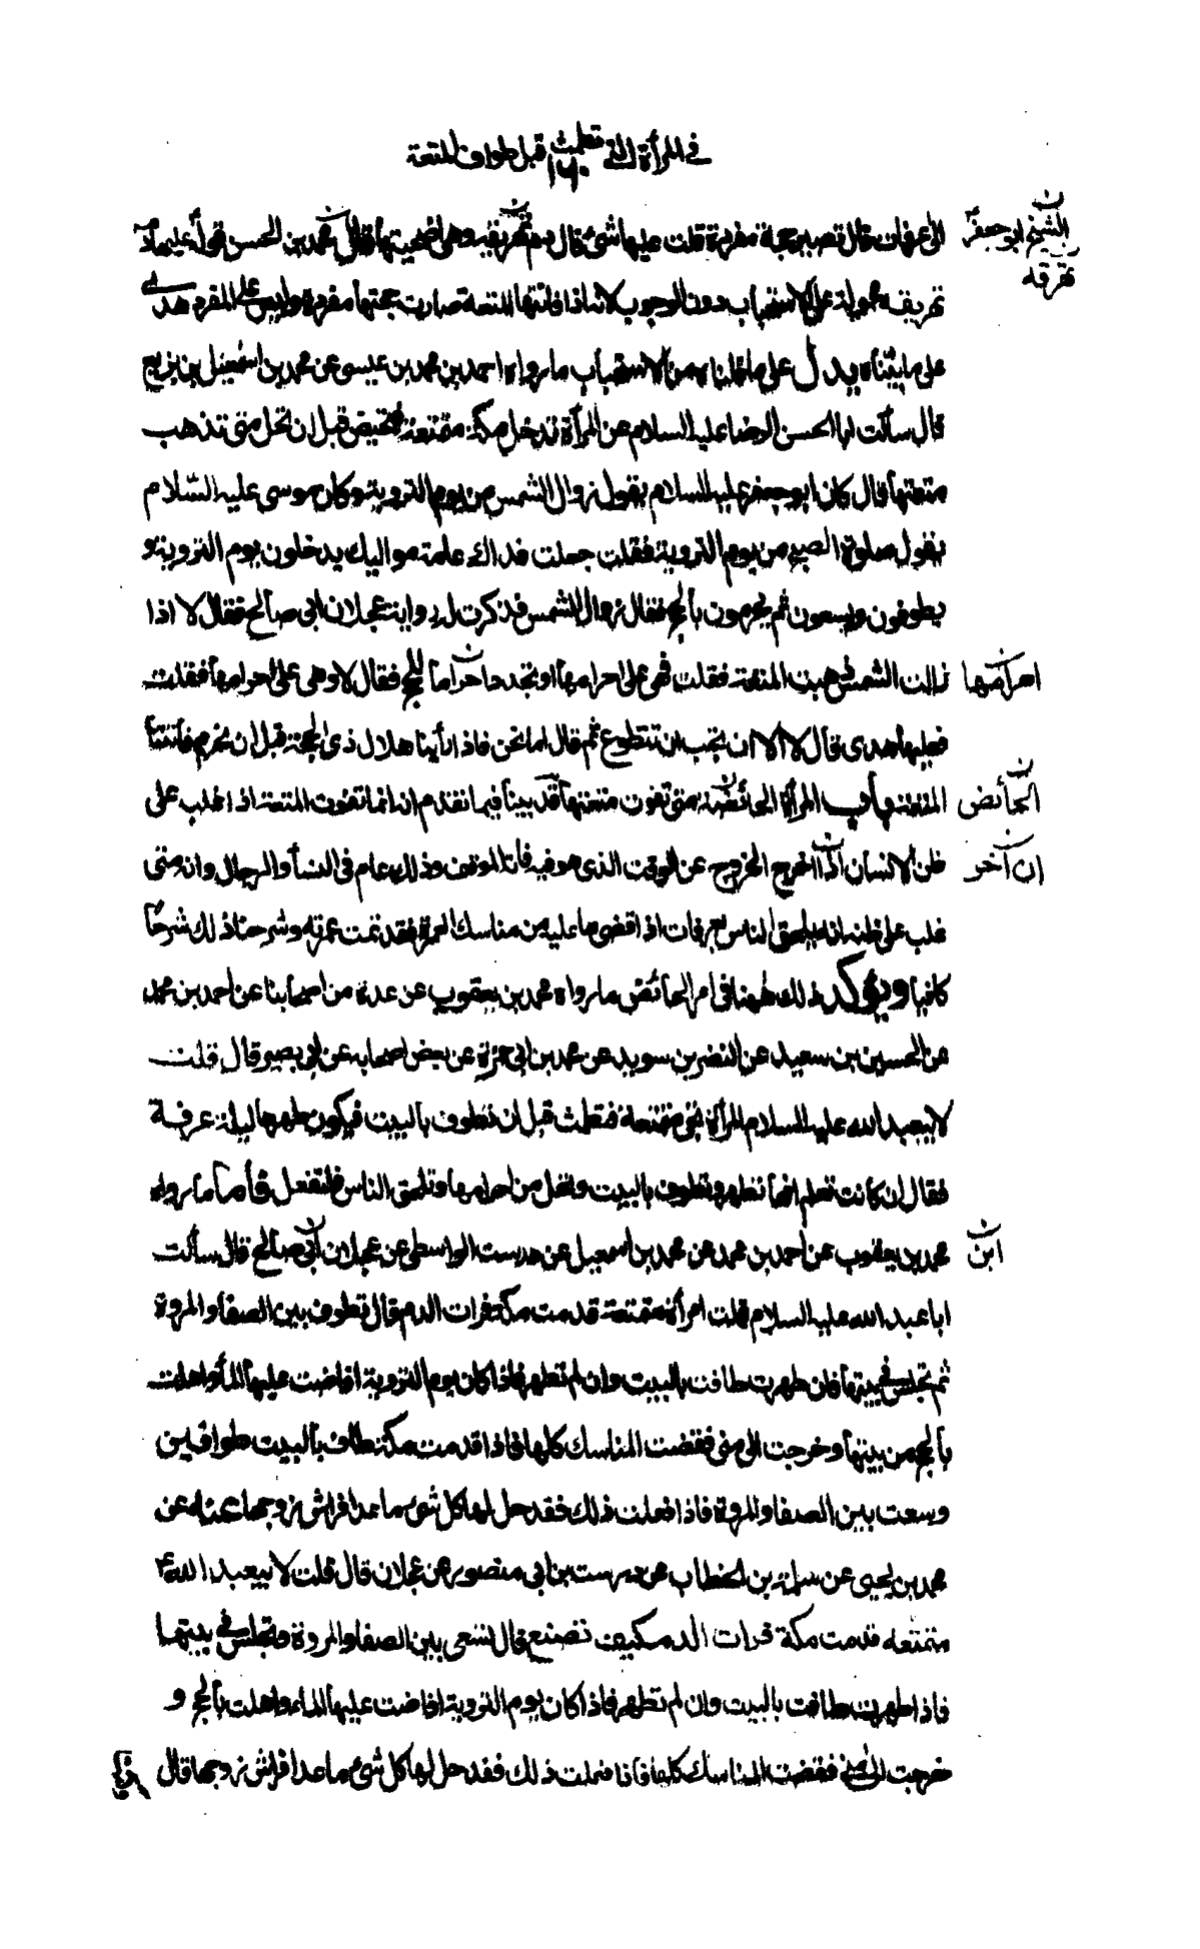 في المرأة التي تطمث قبل طواف المتعة
١٦٠
الى عرفات قال تصير حجة مفردة قلت عليها شئ قال دم تهريقه وهي اضحيتها قال محمد بن الحسن قوله عليها دم
الشيخ ابو جعفر
تهرقه
تهريقه محمولة على الاستحباب دون الوجوب لانه اذا فاتتها المتعة صارت حجتها مفردة وليس على المفرد هدي
على ما بيناه يدل على ما قلناه من الاستحباب ما رواه احمد بن محمد بن عيسى عن محمد بن اسمعيل بن بزيع
قال سألت ابا الحسن الرضا عليه السلام عن المرأة تدخل مكة متمتعة فتحيض قبل ان تحل متى تذهب
متعتها قال كان ابو جعفر عليه السلام يقول زوال الشمس من يوم التروية وكان موسى عليه السلام
يقول صلوة الصبح من يوم التروية فقلت جعلت فداك عامة مواليك يدخلون يوم التروية و
يطوفون ويسعون ثم يحرمون بالحج فقال زوال الشمس فذكرت له رواية عجلان ابي صالح فقال لا اذا
زالت الشمس ذهبت المتعة فقلت فهي على احرامها او تجدد احراما للحج فقال لا وهي على احرامها فقلت
احرامها
فعليها هدى قال لا الا ان تحب ان تتطوع ثم قال اما نحن فاذا رأينا هلال ذي الحجة قبل ان نحرم فاتتنا
المتعة باب المرأة الحائضة متى تفوت متعتها قد بينا فيما تقدم انه انما تفوت المتعة اذا غلب على
الحائض
ظن الانسان انه اذا اخرج الخروج عن الوقت الذي هو فيه فاته الموقف وذلك عام في النسأ والرجال وانه متى
ان اخر
غلب على ظنه انه يلحق الناس بعرفات اذا قضى ما عليه من مناسك العمرة فقد تمت عمرته وشرحنا ذلك شرحا
كافيا ويؤكد ذلك ههنا في امر الحائض ما رواه محمد بن يعقوب عن عدة من اصحابنا عن احمد بن محمد
عن الحسين بن سعيد عن النضر بن سويد عن محمد بن ابي حمزة عن بعض اصحابه عن ابي بصير قال قلت
لابيعبد الله عليه السلام المرأة تجئ متمتعة فتطمث قبل ان تطوف بالبيت فيكون طهرها ليلة عرفة
فقال ان كانت تعلم انها تطهر وتطوف بالبيت وتحل من احرامها وتلحق الناس فلتفعل فأما ما رواه
محمد بن يعقوب عن احمد بن محمد عن محمد بن اسمعيل عن درست الواسطى عن عجلان ابي صالح قال سألت
ابن
ابا عبد الله عليه السلام قلت امرأة متمتعة قدمت مكة فرات الدم قال تطوف بين الصفا والمروة
ثم تجلس في بيتها فان طهرت طافت بالبيت وان لم تطهر فاذا كان يوم التروية افاضت عليها المأ واهلت
بالحج من بيتها وخرجت الى منى فقضت المناسك كلها فاذا قدمت مكة طافت بالبيت طوافين
وسعت بين الصفا والمروة فاذا فعلت ذلك فقد حل لها كل شئ ما عدا فراش زوجها عنه عن
محمد بن يحيى عن سلمة بن الخطاب عن درست بن ابي منصور عن عجلان قال قلت لابيعبد الله ع
متمتعه قدمت مكة فرات الدم كيف تصنع قال تسعى بين الصفا والمروة وتجلس في بيتها
فاذا طهرت طافت بالبيت وان لم تطهر فاذا كان يوم التروية افاضت عليها الماء واهلت بالحج و
خرجت الى منى فقضت المناسك كلها فاذا فعلت ذلك فقد حل لها كل شئ ما عدا فراش زوجها قال